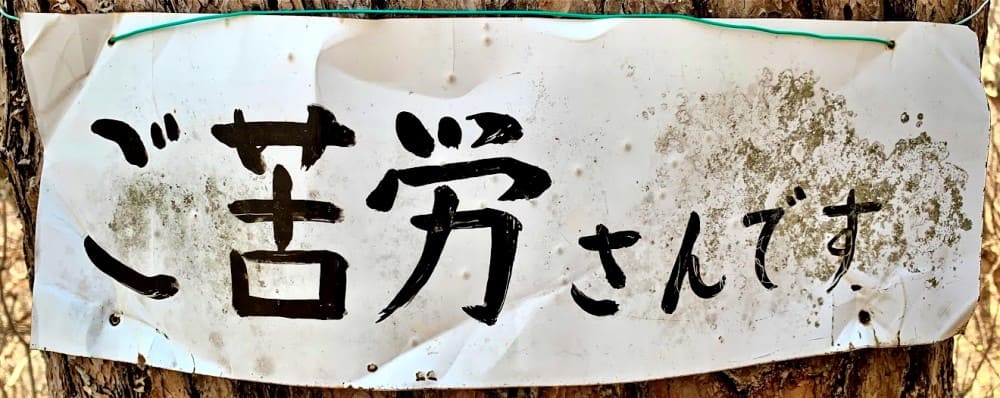 ご苦労さんです